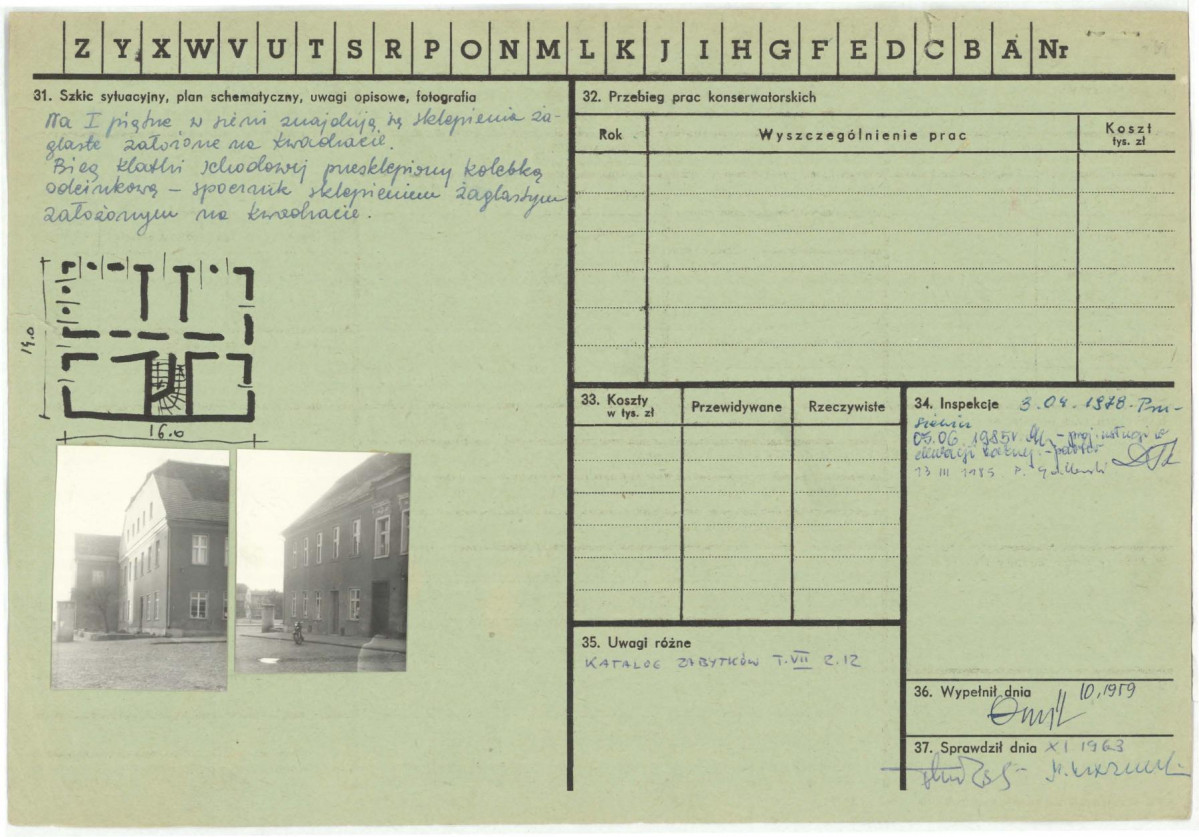 Z Y X W V U T S R P O N M L K J I H G F E D C B A Nr
31. Szkic sytuacyjny, plan schematyczny, uwagi opisowe, fotografia
Na I piętrze w sieni znajdują się sklepienia ża-
glaste założone na kwadracie.
Bieg klatki schodowej przesklepiony kolebką
odcinkową – spocznik sklepieniem żaglastym
założonym na kwadracie.
14.0
16.0
32. Przebieg prac konserwatorskich
Rok Wyszczególnienie prac Koszt
tys. zł
33. Koszty
w tys. zł
Przewidywane Rzeczywiste
34. Inspekcje 3.04.1978.
05.06.1985r.
elewacji
13 III 1985 P.
35. Uwagi różne
KATALOG ZABYTKÓW T.VII Z.12
36. Wypełnił dnia 10.1959
37. Sprawdził dnia XI 1963